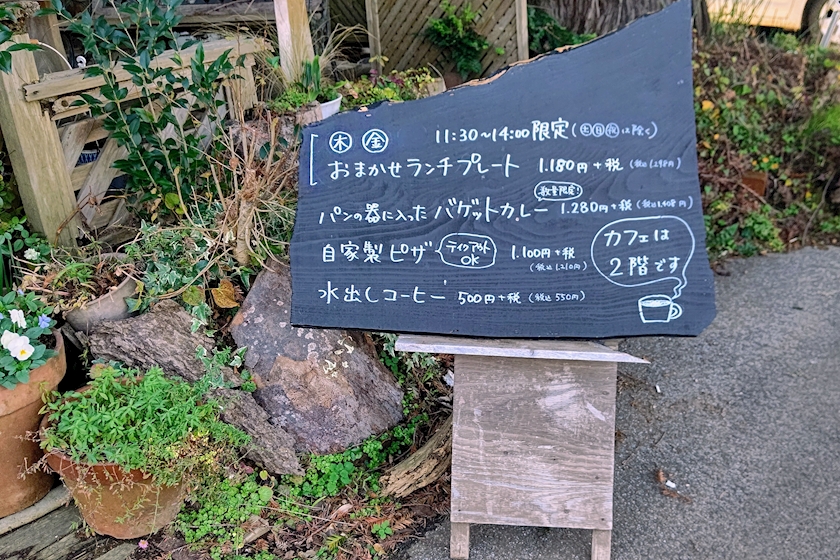 木 金 11:30~14:00 限定(土日祝は除く)
おまかせランチプレート 1.180円+税 (税込1.298円)
数量限定!
パンの器に入ったバゲットカレー 1.280円+税 (税込1.408円)
自家製ピザ テイクアウトOK 1.100円+税
(税込1.210円)
水出しコーヒー 500円+税 (税込550円)
カフェは
2階です